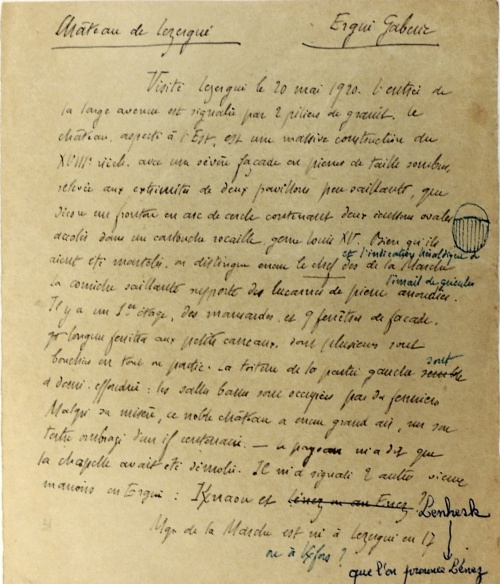 Château de Lezergué Ergué Gabéric
Visité Lezergué le 20 mai 1920. L'entrée de
la large avenue est signalée par 2 piliers de granit. Le
château, aspecté à l'Est, est une massive construction du
XVIIIe siècle. avec une sévère façade en pierres de taille sombres,
relevée aux extrémités de deux pavillons peu saillants, que
décore un fronton en arc de cercle contenant deux écussons ovales
accolés dans un cartouche rocaille, genre Louis XV. Bien qu'ils
et l'indication héraldique de
aient été martelés, on distingue encore le chef des de la Marche
l'émail de gueules
la corniche saillante supporte des lucarnes de pierre arrondies.
Il y a un 1er étage, des mansardes, et 9 fenêtres de façade.
longues fenêtres aux petits carreaux, dont plusieurs sont
bouchées en tout ou partie. La toiture de la partie gauche semble sont
à demi effondrée : les salles basses sont occupées par du fermiers
Malgré sa misère, ce noble château a encore grand air, sur son
tertre ombragé d'un if centenaire. — Un paysan m'a dit que
la chapelle avait été démolie. Il m'a signalé 2 autres vieux
manoirs en Ergué : Kxnaou et Lénez ou an Enez ? Penhesk
Mgr de la Marche est né à Lezergué en 17
ou à ? que l'on prononce Lénez